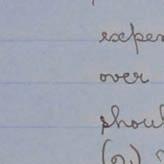 expen
over
shoul
(a)